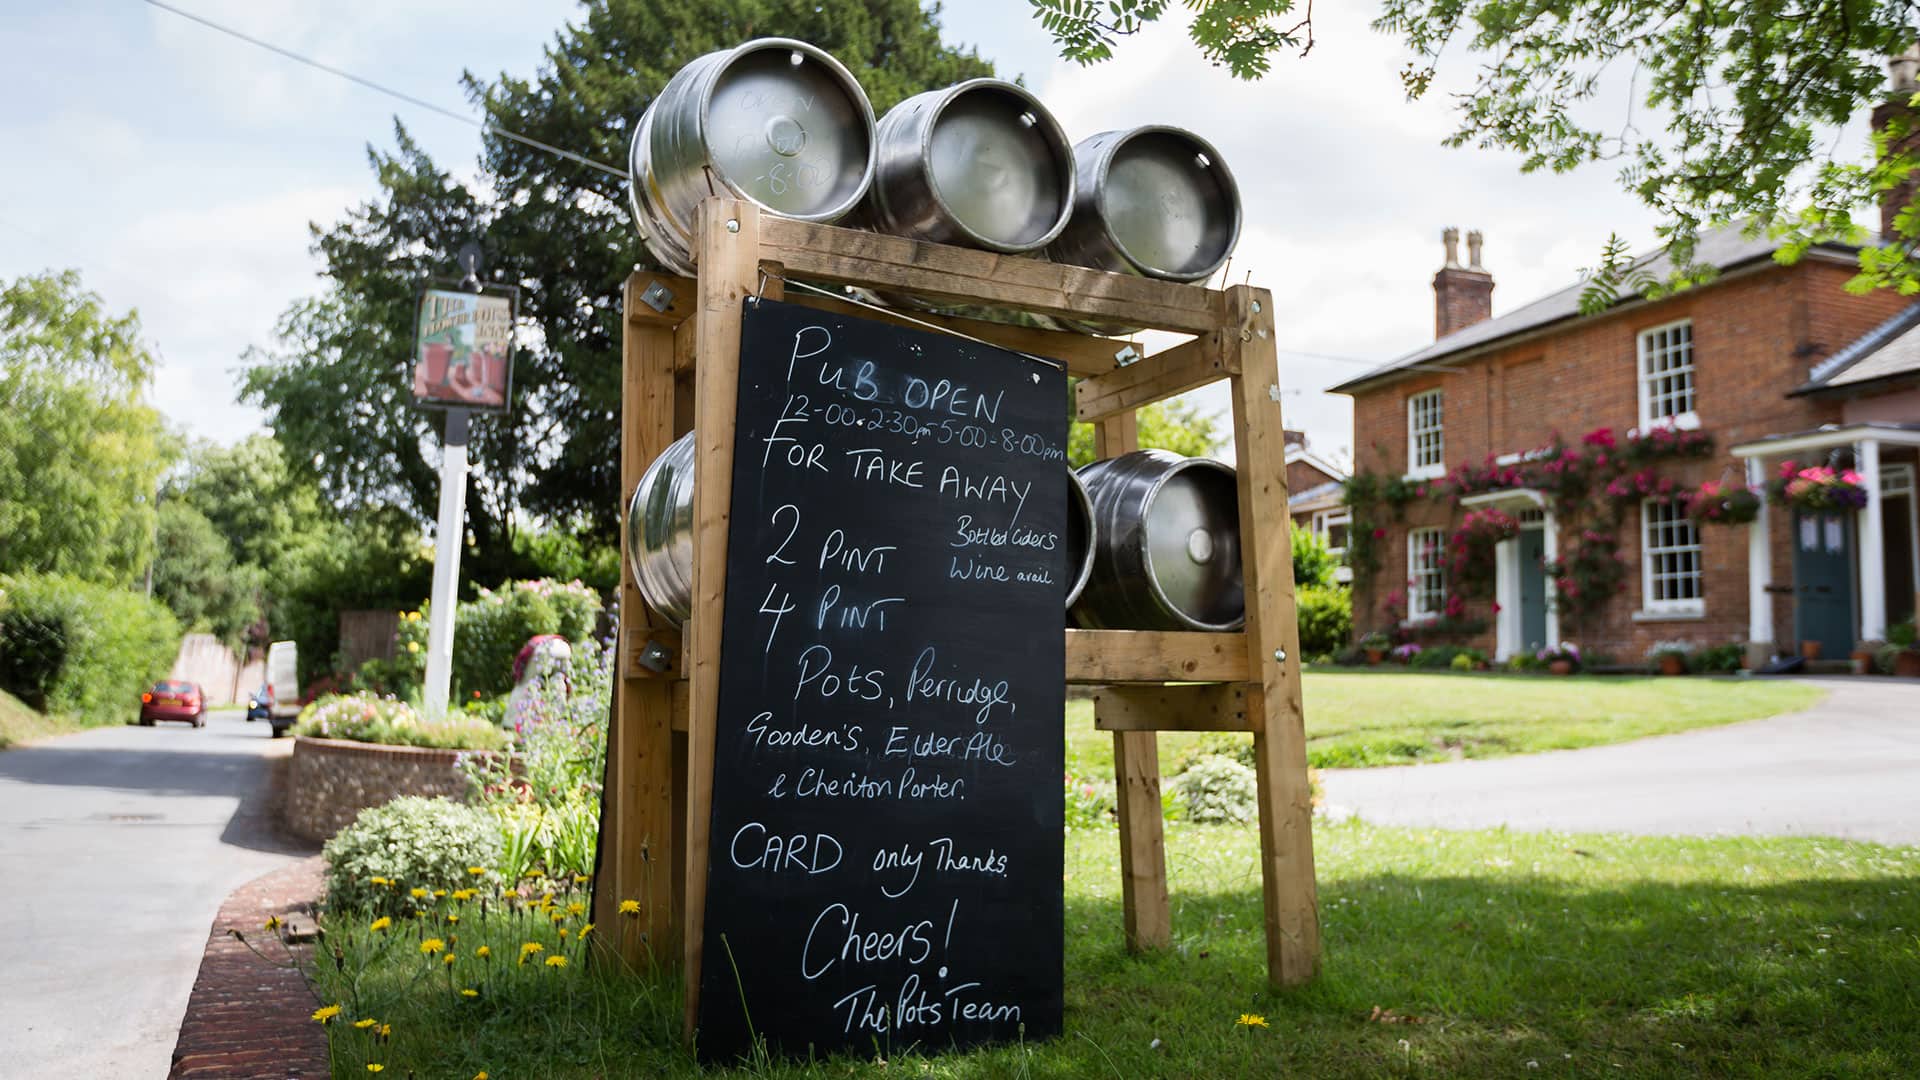 OPEN
-8:00
THE
FLOWER POTS
INN
PUB OPEN
12-00-2-30pm 5-00-8-00pm
FOR TAKE AWAY
2 PINT
4 PINT
Bottled Ciders
Wine avail.
Pots, Perridge,
Gooden's, Elder Ale
& Cheriton Porter.
CARD only Thanks.
Cheers!
The Pots Team